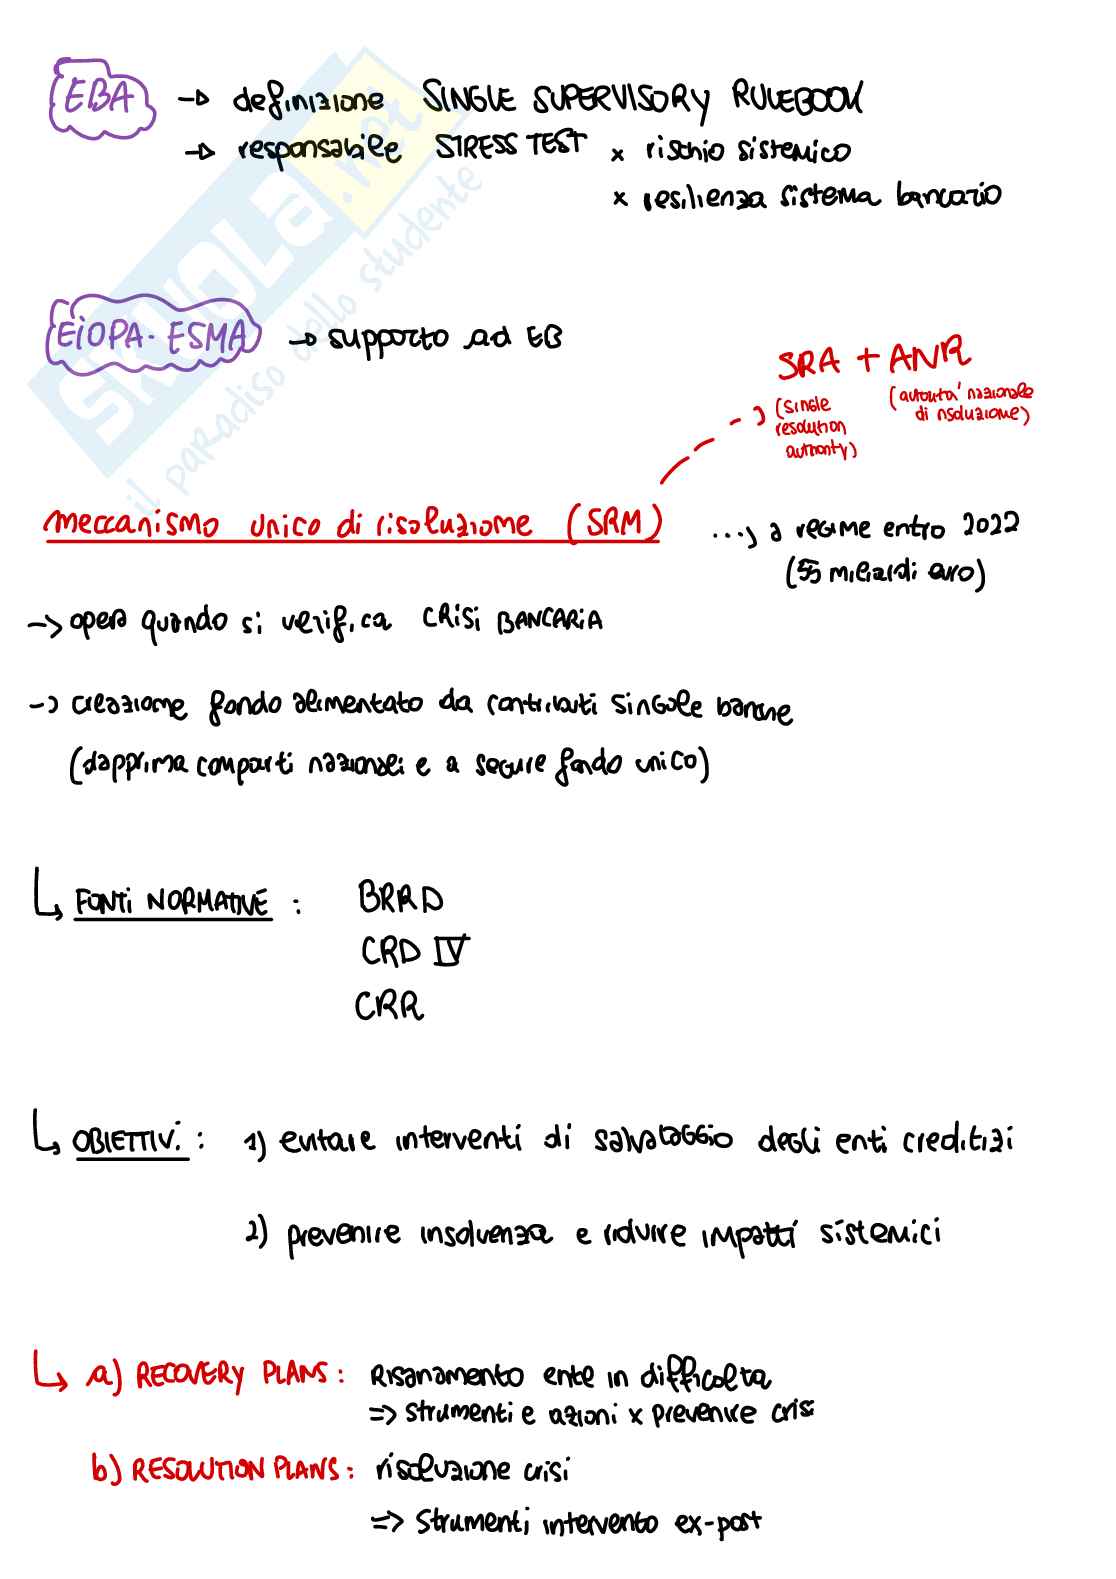 EBA → definizione SINGLE SUPERVISORY RULEBOOK
→ responsabile STRESS TEST x rischio sistemico
x resilienza sistema bancario
EIOPA - ESMA → supporto ad EB
SRA + ANR
(single resolution authority) (autorità nazionale di risoluzione)
meccanismo unico di risoluzione (SRM) ...→ a regime entro 2022
(55 miliardi euro)
→ opera quando si verifica CRISI BANCARIA
→ creazione fondo alimentato da contributi singole banche
(dapprima comparti nazionali e a seguire fondo unico)
↳ FONTI NORMATIVE : BRRD
CRD IV
CRR
↳ OBIETTIVI : 1) evitare interventi di salvataggio degli enti creditizi
2) prevenire insolvenza e ridurre impatti sistemici
↳ a) RECOVERY PLANS : Risanamento ente in difficolta
=> strumenti e azioni x prevenire crisi
b) RESOLUTION PLANS : risoluzione crisi
=> strumenti intervento ex-post
SKUOLA.net
il paradiso dello studente